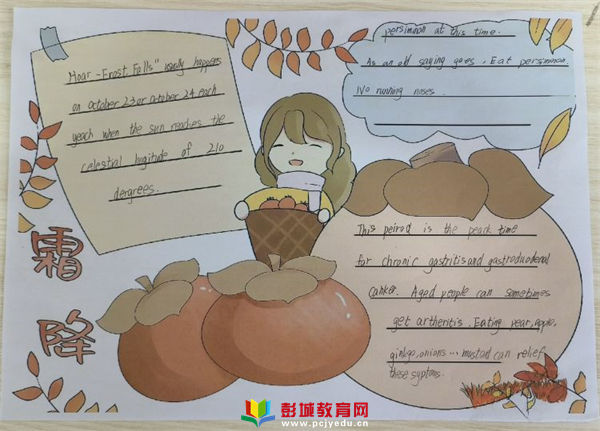 Hoar-Frost Falls" usually happens
on October 23 or October 24 each
yeach when the sun reaches the
celestial lngitude of 210
dergrees.
persimmon at this time.
As an old saying goes, Eat persimmon
No running noses.
This peirod is the peack time
for chronic gastritis and gastroduodenal
canker. Aged people can sometimes
get artheritis. Eating pear, apple,
ginkgo, onions... mustard can relief
these syptoms.
霜
降
彭城教育网
www.pcjyedu.cn